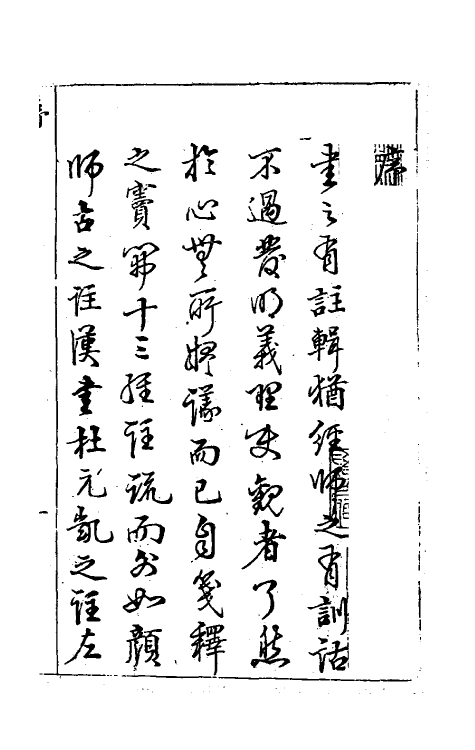 書之有註輯猶經師之有訓詁
不過發明義理使觀者了然
於心無所擬議而已自箋釋
之竇開十三經註疏而外如顏
師古之註漢書杜元凱之註左